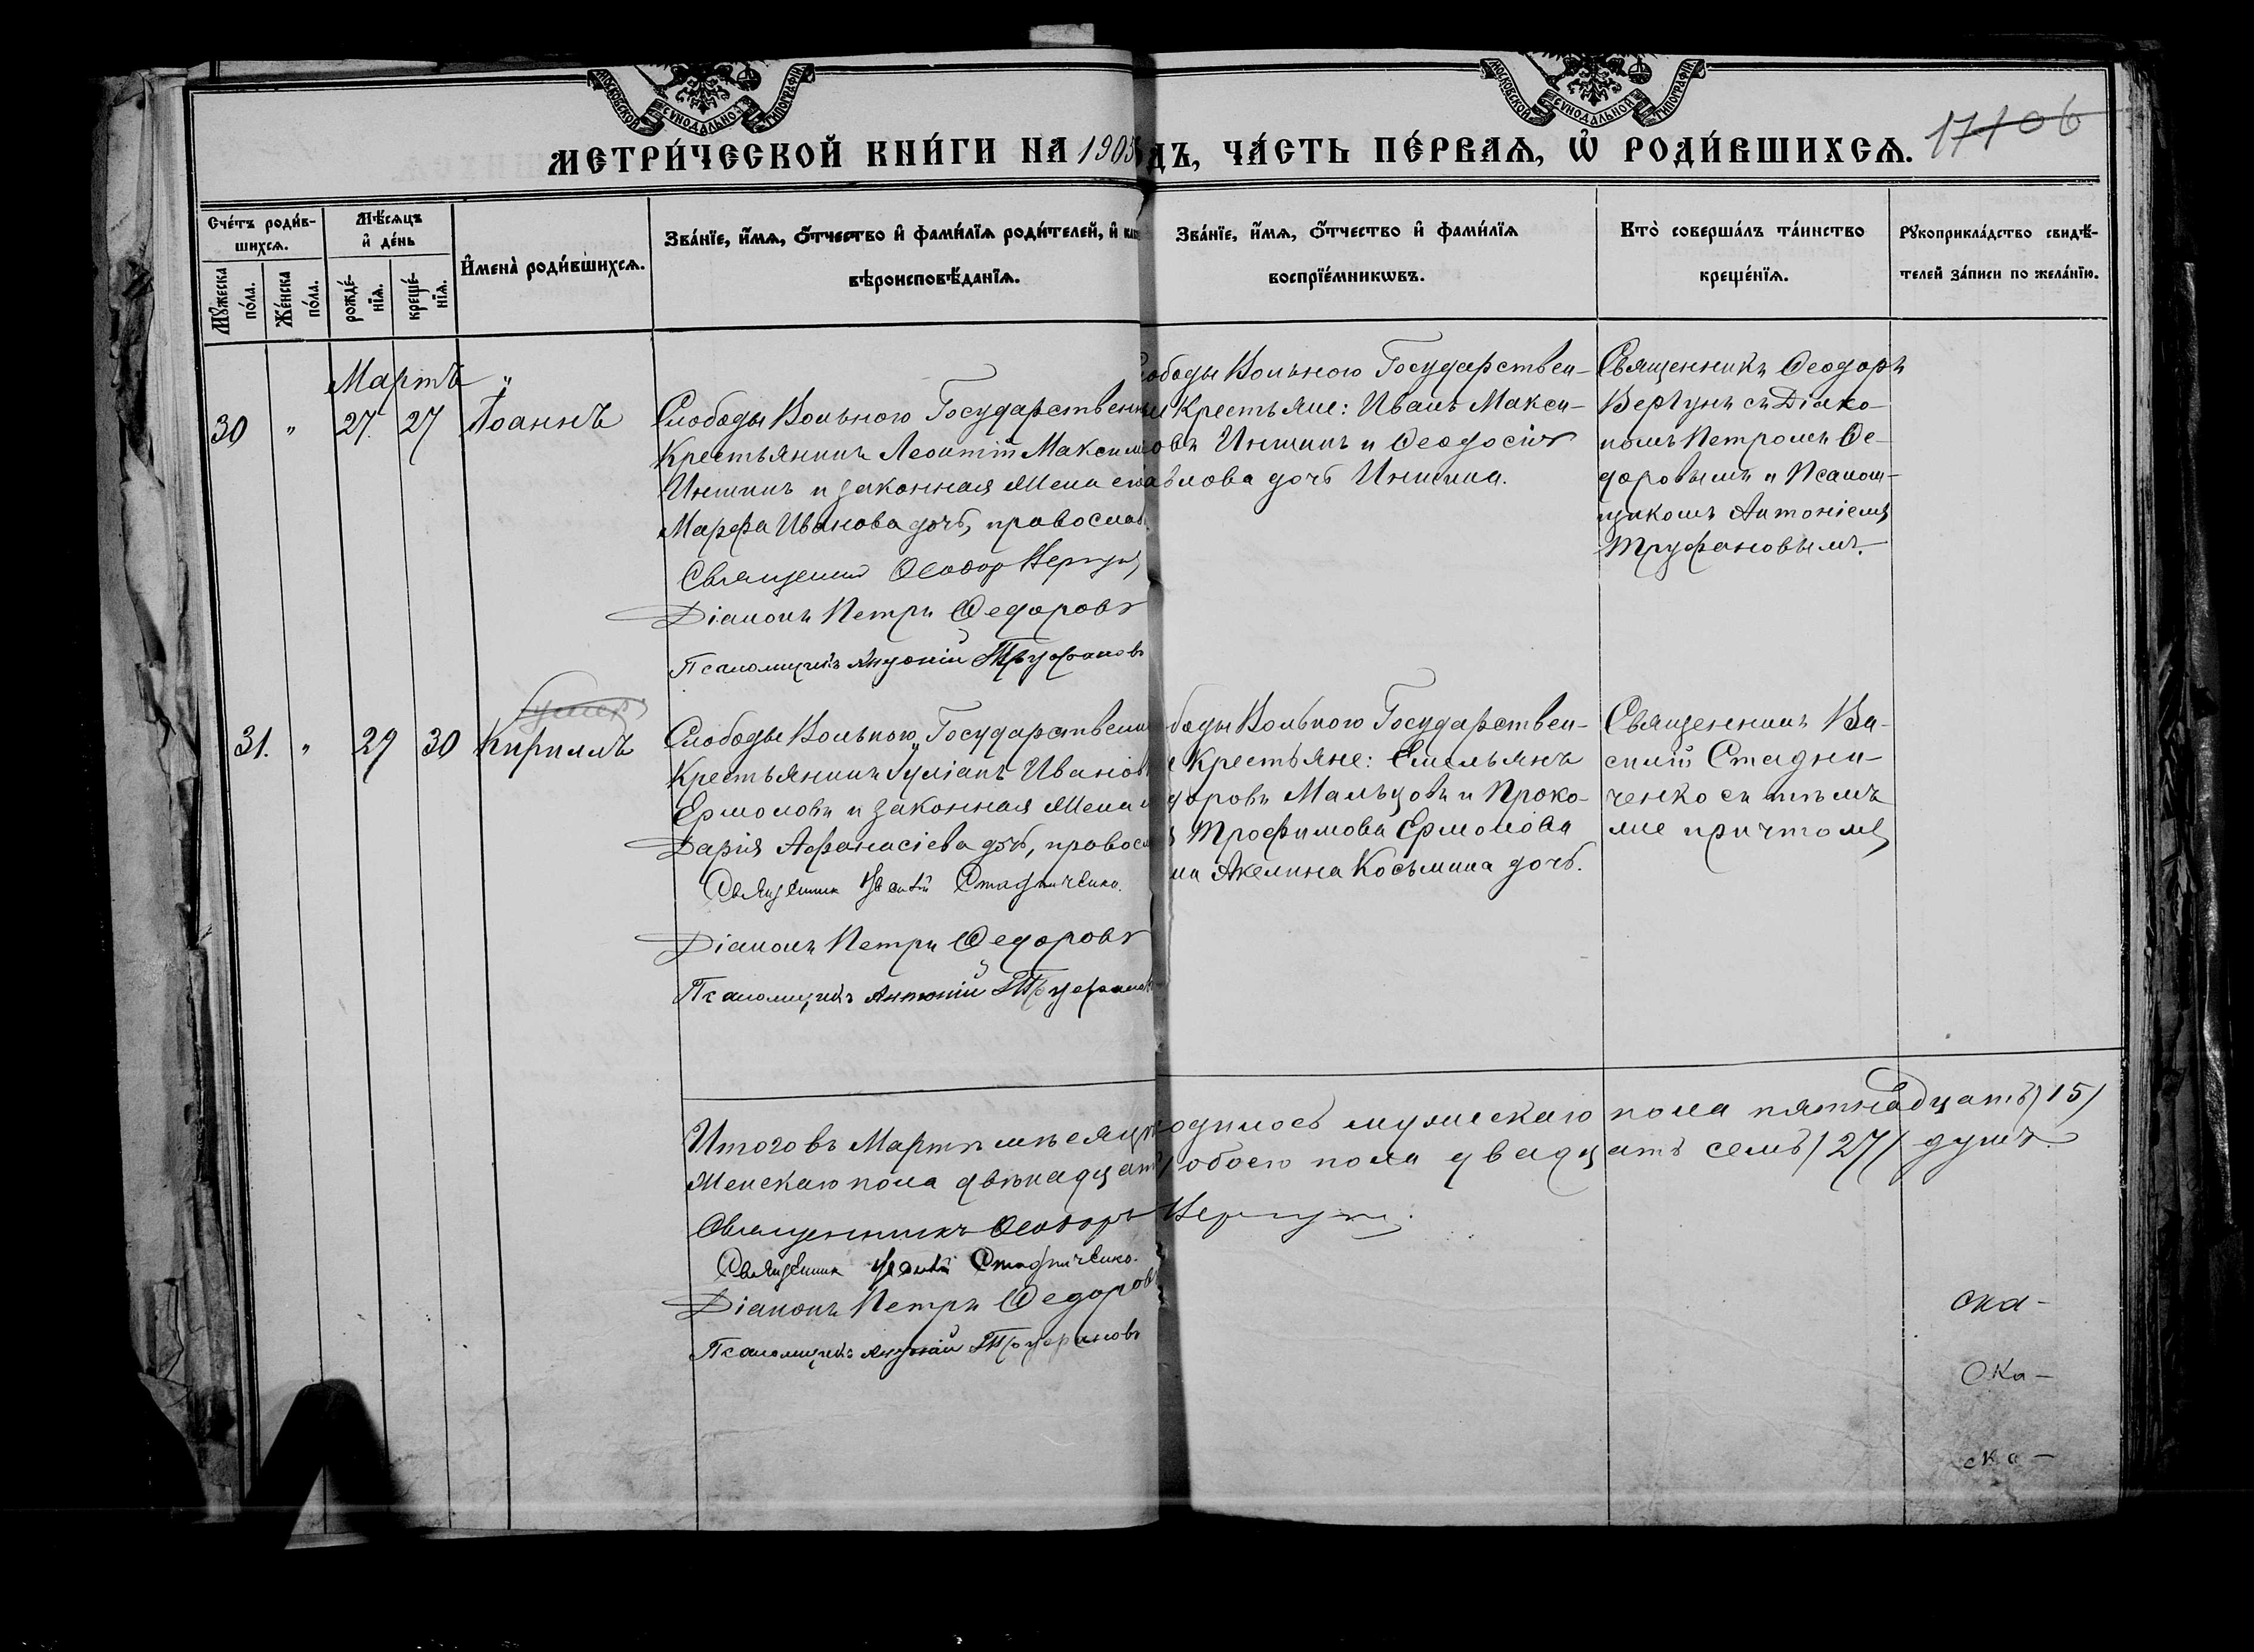 МОСКОВСКОЙ СѴНОДАЛЬНОЙ ТИПОГРАФІИ
МОСКОВСКОЙ СѴНОДАЛЬНОЙ ТИПОГРАФІИ
МЕТРИ́ЧЕСКОЙ КНИ́ГИ НА 1905
ДЪ, ЧА́СТЬ ПЕ́РВАѦ, Ѡ҆ РОДИ́ВШИХСѦ.
17 106
Сче́тъ роди́в-
шихсѧ.
Мꙋ́жеска по́ла.
Же́нска по́ла.
Мѣ́сѧцъ
и҆ де́нь
рожде́-
нїѧ.
креще́-
нїѧ.
И҆мена̀ роди́вшихсѧ.
Зва́нїе, и҆́мѧ, ѻ҆́тчество и҆ фами́лїѧ роди́телей, и҆ как
вѣроисповѣ́данїѧ.
Зва́нїе, и҆́мѧ, ѻ҆́тчество и҆ фами́лїѧ
воспрїе́мникѡвъ.
Кто̀ соверша́лъ та́инство
креще́нїѧ.
Рꙋкоприкла́дство свидѣ́-
телей за́писи по жела́нїю.
Мартъ
30 " 27 27 Іоаннъ
Слободы Вольного Государственны
Крестьянинъ Леонтій Максим
Иншинъ и законная жена его
Марфа Иванова дочь, православ.
Священник Ѳеодор Вергун
Діаконъ Петръ Ѳедоровъ
Псаломщикъ Антоній Труфановъ
ободы Вольного Государствен-
Крестьяне: Иванъ Макси-
овъ Иншинъ и Ѳеодосія
влова дочь Иншина.
Священникъ Ѳеодоръ
Вергунъ съ Діако-
номъ Петромъ Ѳе-
доровымъ и Псалом-
щикомъ Антоніемъ
Труфановымъ.
умер
31. " 29 30 Кириллъ
Слободы Вольного Государственны
Крестьянинъ Іуліанъ Иванов
Ермоловъ и законная жена
Дарія Афанасіева дочь, правосл
Священник Василій Стадниченко.
Діаконъ Петръ Ѳедоровъ
Псаломщикъ Антоній Труфанов
боды Вольного Государствен-
Крестьяне: Емельянъ
доровъ Мальцовъ и Проко-
Трофимова Ермолова
на Акелина Косьмина дочь.
Священникъ Ва-
силій Стадни-
ченко съ тѣмъ
же причтомъ
Итого въ Мартѣ мѣсяцѣ родилось мужескаго пола пятнадцать /15/
Женскаго пола двѣнадцать обоего пола двадцать семь /27/ душъ.
Священникъ Ѳеодоръ Вергунъ
Священник Василій Стадниченко.
Діаконъ Петръ Ѳедоров
Псаломщикъ Антоній Труфановъ
ска-
ска-
ска-